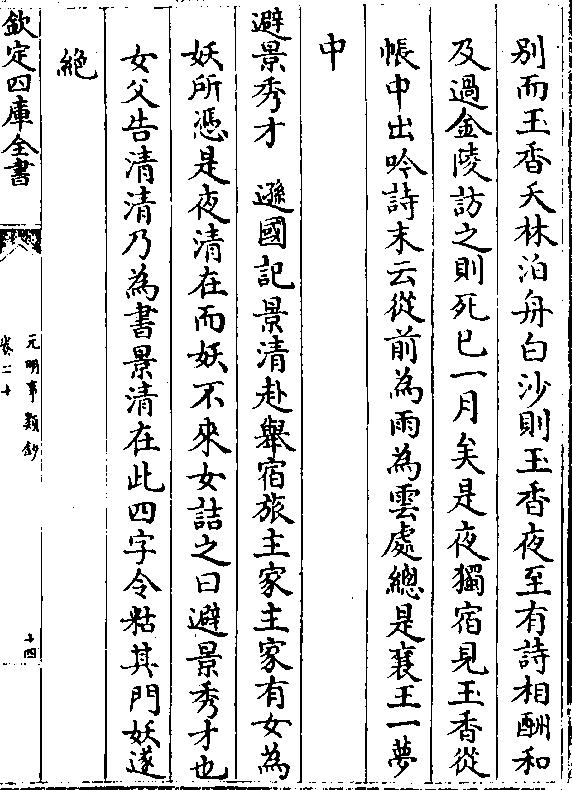 別而玉香夭林泊舟白沙則玉香夜至有詩相酬和
及過金陵訪之則死已一月矣是夜獨宿見玉香從
帳中出吟詩末云從前為雨為雲處總是襄王一夢
中
避景秀才　遜國記景清赴舉宿旅主家主家有女為
妖所憑是夜清在而妖不來女詰之曰避景秀才也
女父告清清乃為書景清在此四字令粘其門妖遂
絶
欽定四庫全書
元明事類鈔
卷二十
十四